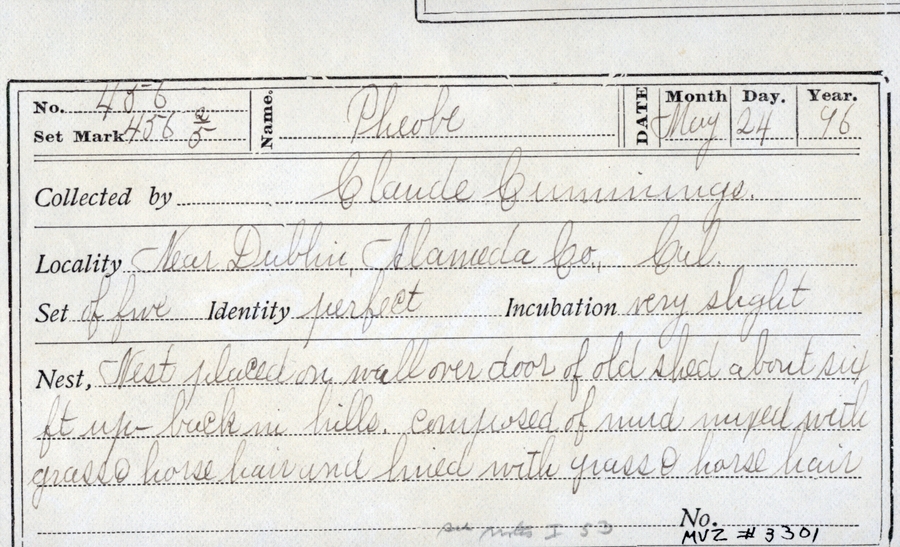 No. 456 Name. Pheobe DATE Month May Day. 24 Year. 96
Set Mark 456 2/5
Collected by Claude Cummings.
Locality Near Dublin, Alameda Co., Cal.
Set of five Identity perfect Incubation very slight
Nest, Nest placed on wall over door of old shed about six
ft up- back in hills. composed of mud mixed with
grass & horse hair and lined with grass & horse hair
No.
I 53 MVZ # 3301